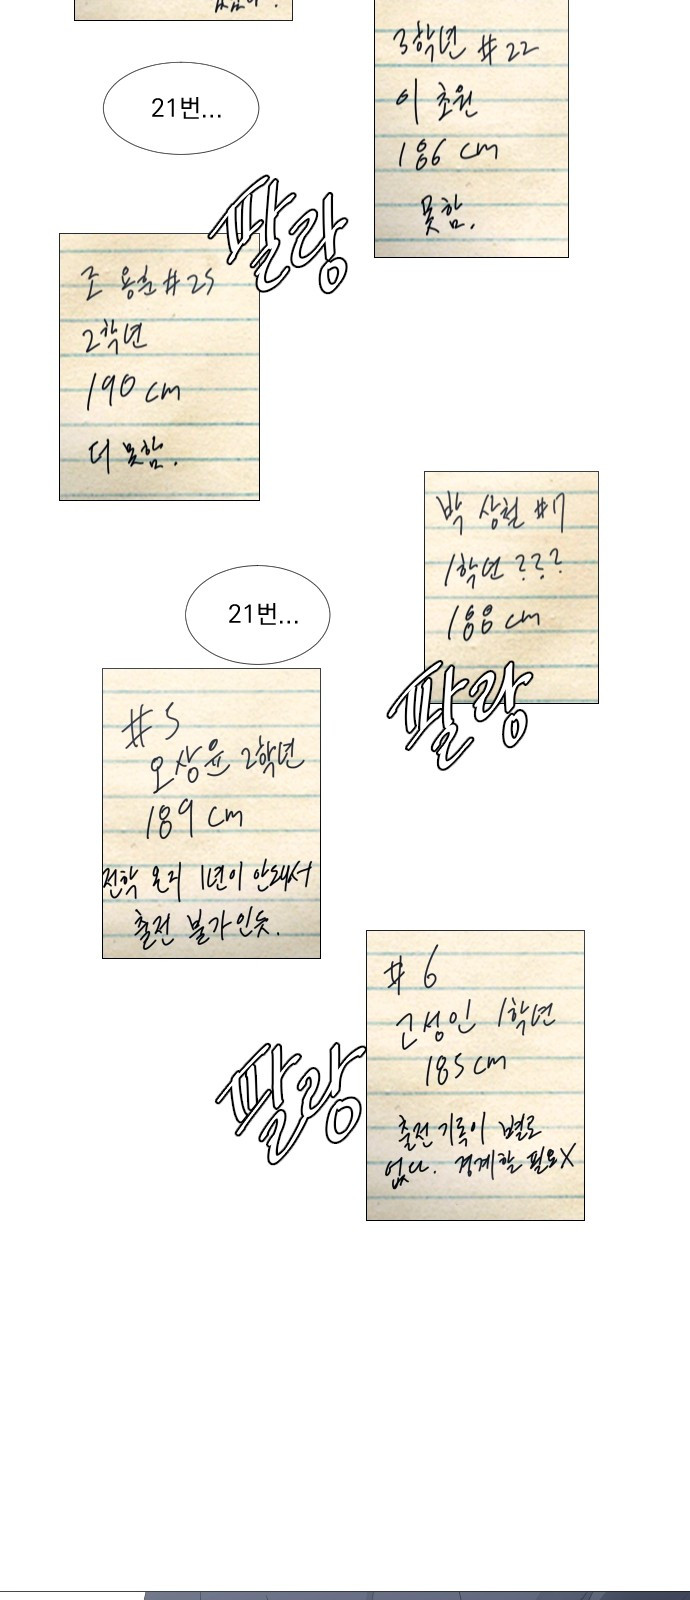 3학년 #22
이 초원
186 cm
못함.
21번...
팔랑
조 용훈 #25
2학년
190 cm
더 못함.
박 상철 #7
1학년 ???
188 cm
21번...
팔랑
#5
오상윤 2학년
189 cm
전학 온지 1년이 안돼서
출전 불가인듯.
#6
고성인 1학년
185 cm
출전 기록이 별로
없다. 경계할 필요X
팔랑